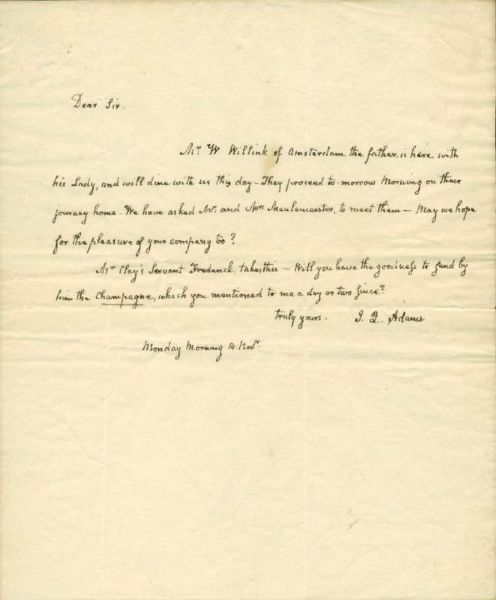 Dear Sir.
Mr. W. Willink of Amsterdam the father, is here with
his Lady, and will dine with us this day — They proceed to-morrow Morning on their
journey home. We have asked Mr. and Mrs. Meulemeester, to meet them — May we hope
for the pleasure of your company too?
Mr. Clay's Servant Frederick, takes this — Will you have the goodness to send by
him the Champagne, which you mentioned to me a day or two since?
truly yours. J. Q. Adams
Monday Morning Novr.